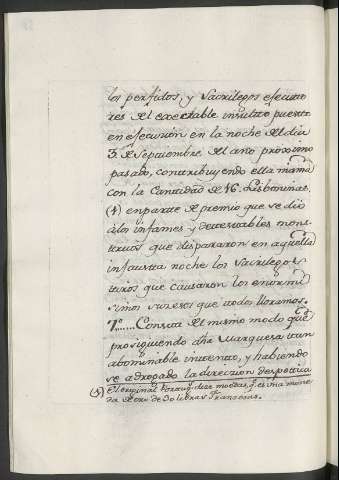 los perfidos, y Sacrilegos efecuto
res del execrable insulto puesto
en efecusion en la noche del dia
3 de Septiembre del año proximo
pasado, contribuyendo ella mama
con la Cantidad de 16. Lisboninas.
(4) en parte de premio que se dió
à los infames y detestables mons
truos que dispararon en aquella
infausta noche los Sacrilegos
tiros que causaron los enormi
simos sucesos que todos lloramos.
7º...... Consta del mismo modo que
prosiguiendo dha Marquesa tan
abominable intento, y habiendo
se adrogado la direccion despotica
El original diez monedas, q.e es una mone
da de oro de libras Francesas.